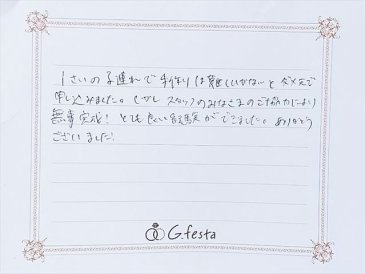 1さいの子連れで手作りは難しいかないとダメ元で
申し込みました。しかし スタッフのみなさまのご協力により
無事完成! とても良い経験ができました。ありがとう
ございました!
G.festa